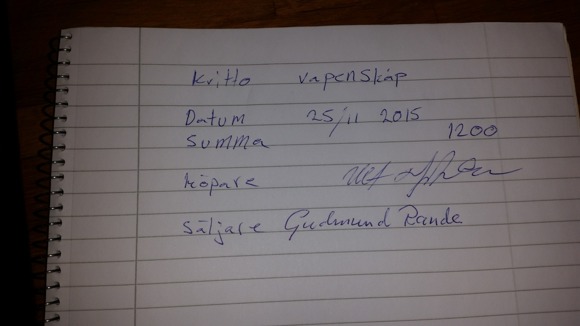 Kritto vapenskåp
Datum 25/11 2015
Summa 1200
Köpare
Säljare Gudmund Rande